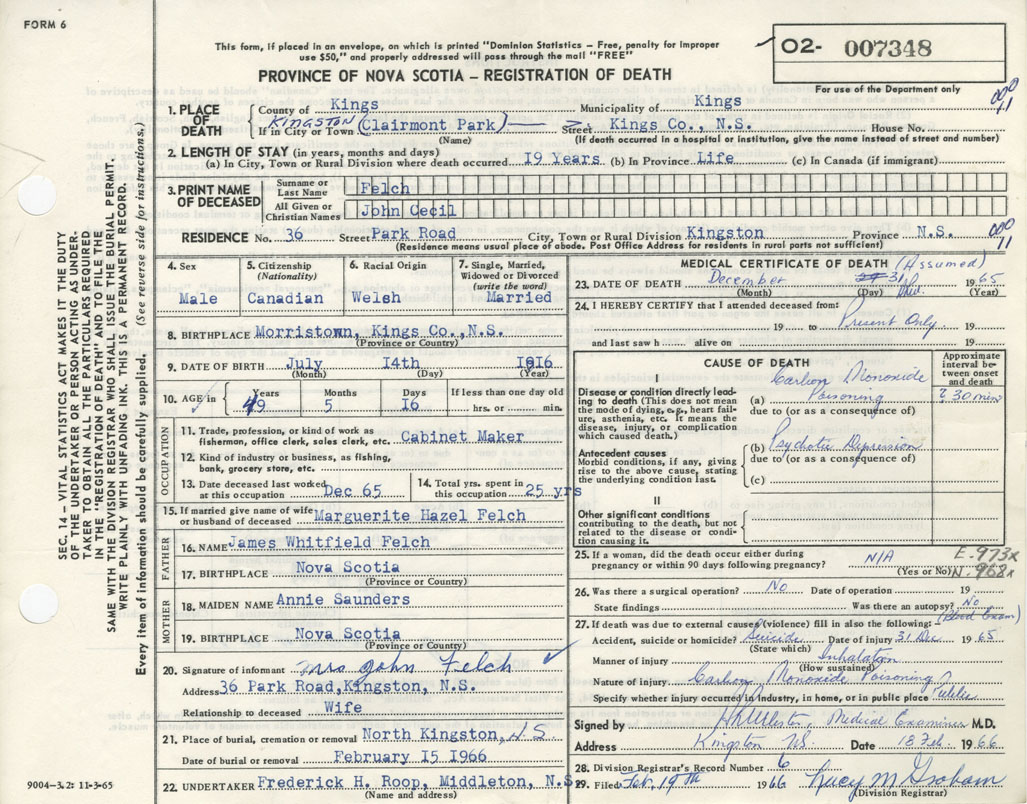 FORM 6
This form, if placed in an envelope, on which is printed "Dominion Statistics – Free, penalty for improper
use $50," and properly addressed will pass through the mail "FREE"
PROVINCE OF NOVA SCOTIA – REGISTRATION OF DEATH
02- 007348
For use of the Department only
SEC. 14 – VITAL STATISTICS ACT MAKES IT THE DUTY
OF THE UNDERTAKER OR PERSON ACTING AS UNDER-
TAKER TO OBTAIN ALL THE PARTICULARS REQUIRED
IN THE "REGISTRATION OF DEATH" AND TO FILE THE
SAME WITH THE DIVISION REGISTRAR WHO SHALL ISSUE THE BURIAL PERMIT.
WRITE PLAINLY WITH UNFADING INK. THIS IS A PERMANENT RECORD.
Every item of information should be carefully supplied. (See reverse side for instructions.)
1. PLACE OF DEATH
County of Kings Municipality of Kings
KINGSTON
If in City or Town (Clairmont Park) Street Kings Co., N.S. House No.
(Name) (If death occurred in a hospital or institution, give the name instead of street and number)
2. LENGTH OF STAY (in years, months and days)
(a) In City, Town or Rural Division where death occurred 19 Years (b) In Province Life (c) In Canada (if immigrant)
3. PRINT NAME OF DECEASED
Surname or Last Name Felch
All Given or Christian Names John Cecil
RESIDENCE No. 36 Street Park Road City, Town or Rural Division Kingston Province N.S.
(Residence means usual place of abode. Post Office Address for residents in rural parts not sufficient)
4. Sex Male
5. Citizenship (Nationality) Canadian
6. Racial Origin Welsh
7. Single, Married, Widowed or Divorced (write the word) Married
8. BIRTHPLACE Morristown, Kings Co., N.S.
(Province or Country)
9. DATE OF BIRTH July 14th 1916
(Month) (Day) (Year)
10. AGE in Years 49 Months 5 Days 16 If less than one day old hrs. or min.
OCCUPATION
11. Trade, profession, or kind of work as
fisherman, office clerk, sales clerk, etc. Cabinet Maker
12. Kind of industry or business, as fishing,
bank, grocery store, etc.
13. Date deceased last worked
at this occupation Dec 65
14. Total yrs. spent in
this occupation 25 yrs
15. If married give name of wife
or husband of deceased Marguerite Hazel Felch
FATHER
16. NAME James Whitfield Felch
17. BIRTHPLACE Nova Scotia
(Province or Country)
MOTHER
18. MAIDEN NAME Annie Saunders
19. BIRTHPLACE Nova Scotia
(Province or Country)
20. Signature of informant Mrs John Felch
Address 36 Park Road, Kingston, N.S.
Relationship to deceased Wife
21. Place of burial, cremation or removal North Kingston, N.S.
Date of burial or removal February 15 1966
22. UNDERTAKER Frederick H. Roop, Middleton, N.S.
(Name and address)
9004-3.2: 11-3-65
MEDICAL CERTIFICATE OF DEATH (Assumed)
23. DATE OF DEATH December 31 1965
(Month) (Day) (Year)
24. I HEREBY CERTIFY that I attended deceased from:
19 to Present Only 19
and last saw h alive on 19
CAUSE OF DEATH
Approximate interval between onset and death
I
Disease or condition directly lead-
ing to death (This does not mean
the mode of dying, e.g., heart fail-
ure, asthenia, etc. It means the
disease, injury, or complication
which caused death.)
(a) Carbon Monoxide Poisoning 30 min
due to (or as a consequence of)
Antecedent causes
Morbid conditions, if any, giving
rise to the above cause, stating
the underlying condition last.
(b) Psychotic Depression
due to (or as a consequence of)
(c)
II
Other significant conditions
contributing to the death, but not
related to the disease or condi-
tion causing it.
25. If a woman, did the death occur either during
pregnancy or within 90 days following pregnancy? N/A
(Yes or No)
E-973x
N. 968x
26. Was there a surgical operation? No Date of operation 19
State findings Was there an autopsy? No
(Blood Exam)
27. If death was due to external causes (violence) fill in also the following:
Accident, suicide or homicide? Suicide Date of injury 31 Dec 1965
(State which)
Manner of injury Inhalation
(How sustained)
Nature of injury Carbon Monoxide Poisoning
Specify whether injury occurred in industry, in home, or in public place Public
Signed by Medical Examiner M.D.
Address Kingston NS. Date 18 Feb. 1966
28. Division Registrar's Record Number 6
29. Filed Feb. 19th 1966 Lucy M Graham
(Division Registrar)